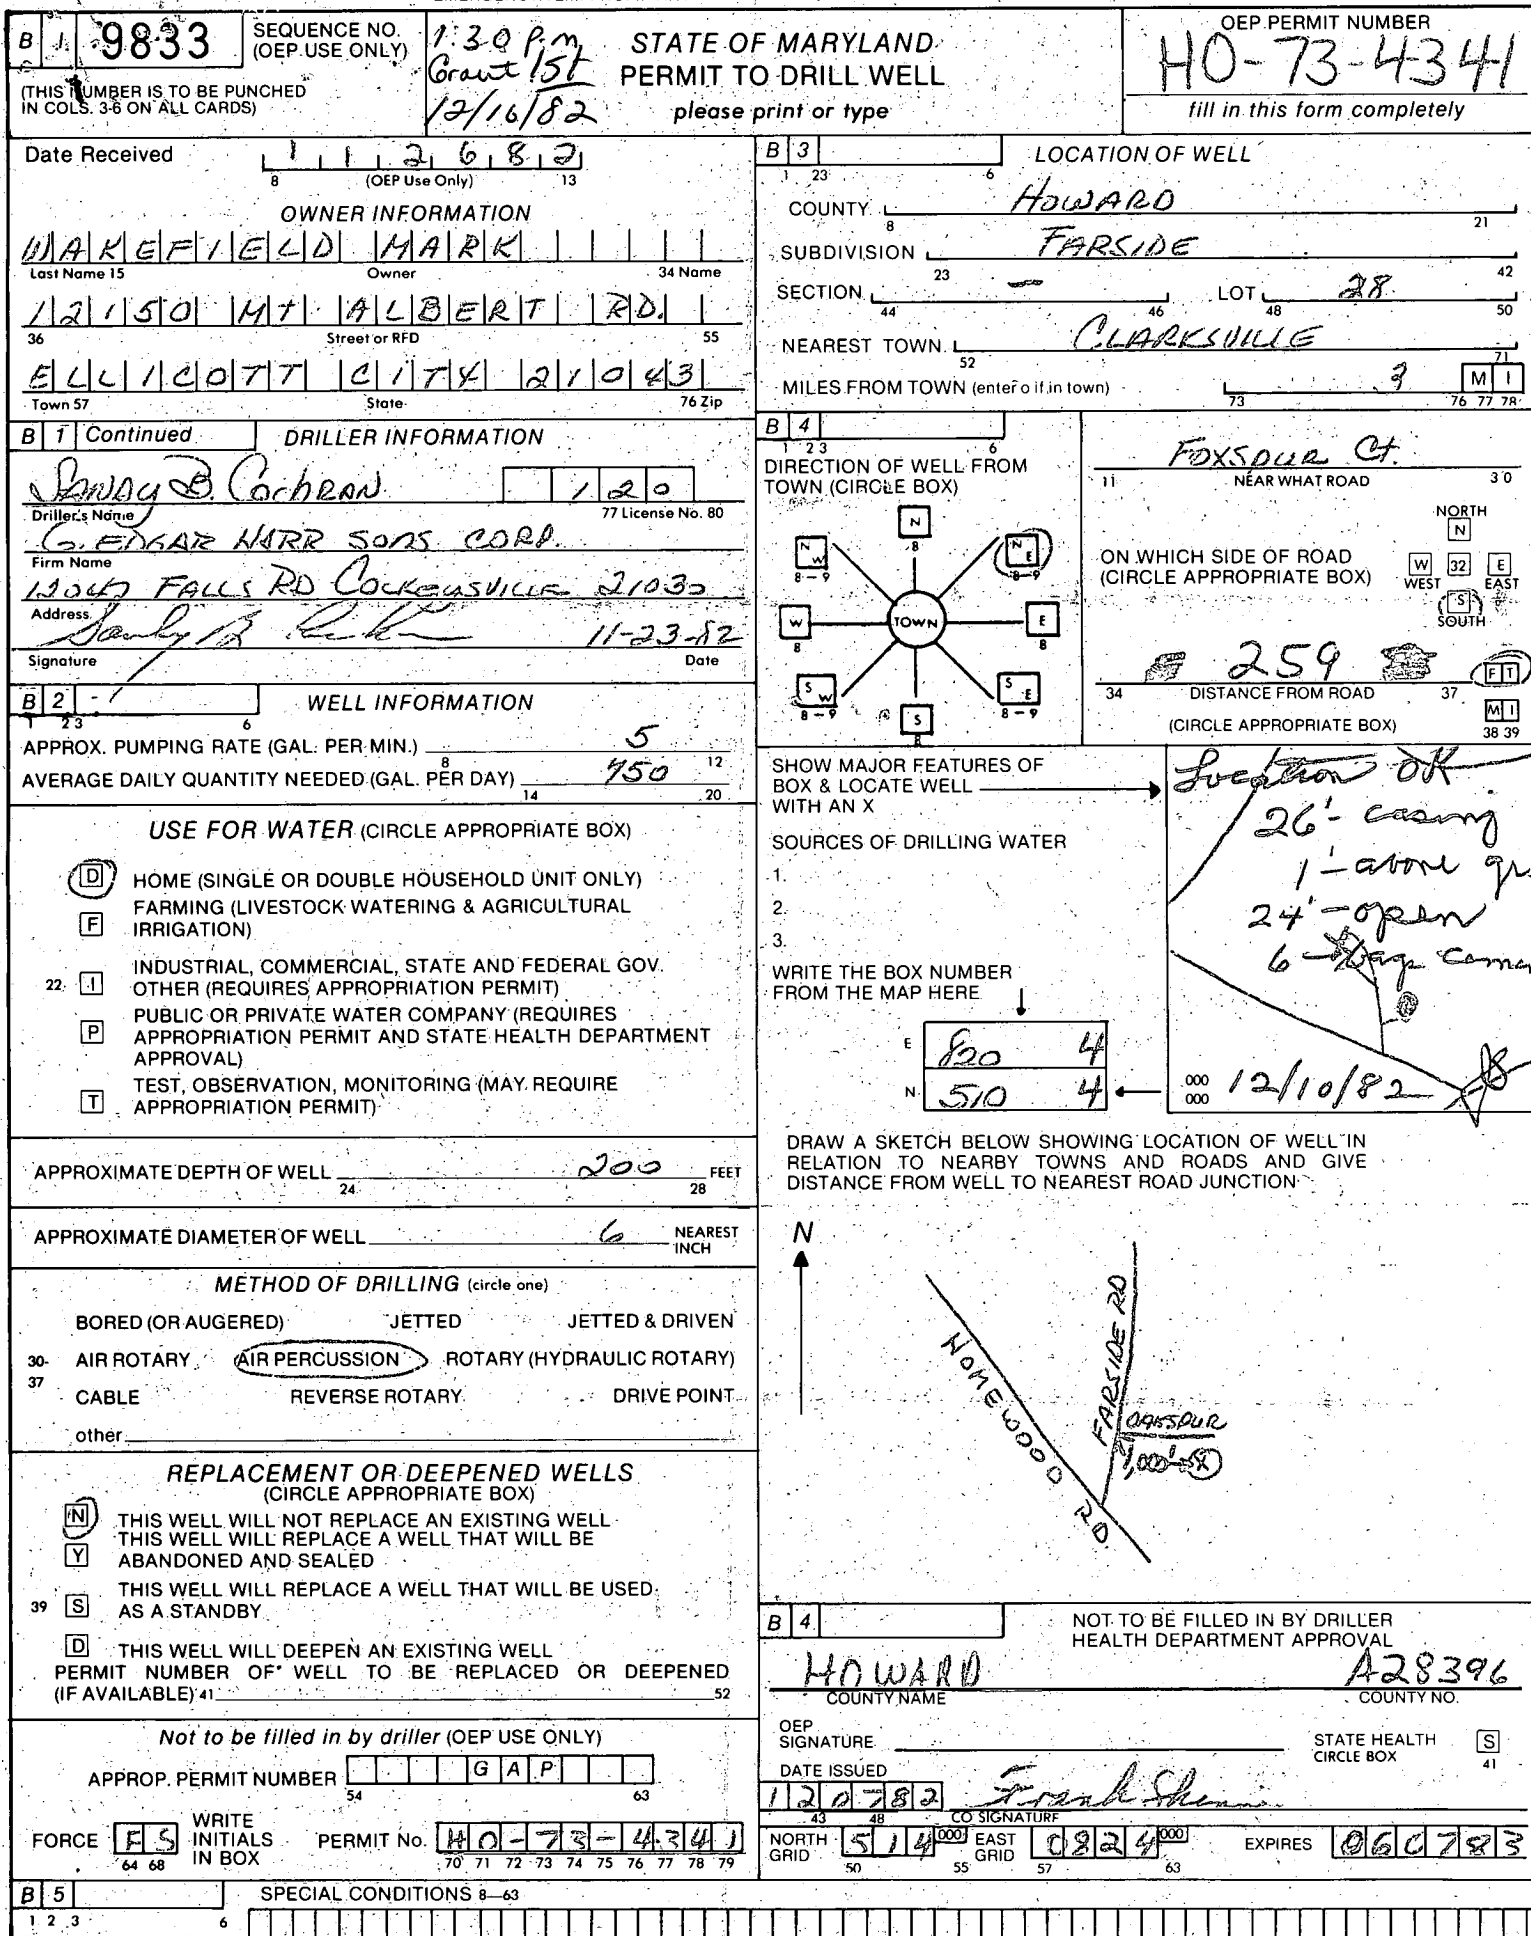 B 1 9833
SEQUENCE NO.
(OEP USE ONLY)
(THIS NUMBER IS TO BE PUNCHED
IN COLS. 3-6 ON ALL CARDS)
1:30 P.m
Grout 1st
12/16/82
STATE OF MARYLAND
PERMIT TO DRILL WELL
please print or type
OEP PERMIT NUMBER
HO-73-4341
fill in this form completely
Date Received 112682
8 (OEP Use Only) 13
OWNER INFORMATION
WAKEFIELD MARK
Last Name 15 Owner 34 Name
12150 Mt ALBERT RD.
36 Street or RFD 55
ELLICOTT CITY 21043
Town 57 State 76 Zip
B 1 Continued DRILLER INFORMATION
SANDY B. COCHRAN 120
Driller's Name 77 License No. 80
G. EDGAR HARR SONS CORP.
Firm Name
12047 FALLS RD COCKEYSVILLE 21030
Address
11-23-82
Signature Date
B 2 WELL INFORMATION
1 2 3 6
APPROX. PUMPING RATE (GAL. PER MIN.) 5
8 12
AVERAGE DAILY QUANTITY NEEDED (GAL. PER DAY) 750
14 20
USE FOR WATER (CIRCLE APPROPRIATE BOX)
D HOME (SINGLE OR DOUBLE HOUSEHOLD UNIT ONLY)
F FARMING (LIVESTOCK WATERING & AGRICULTURAL
IRRIGATION)
22 I INDUSTRIAL, COMMERCIAL, STATE AND FEDERAL GOV.
OTHER (REQUIRES APPROPRIATION PERMIT)
P PUBLIC OR PRIVATE WATER COMPANY (REQUIRES
APPROPRIATION PERMIT AND STATE HEALTH DEPARTMENT
APPROVAL)
T TEST, OBSERVATION, MONITORING (MAY REQUIRE
APPROPRIATION PERMIT)
APPROXIMATE DEPTH OF WELL 200 FEET
24 28
APPROXIMATE DIAMETER OF WELL 6 NEAREST
INCH
METHOD OF DRILLING (circle one)
BORED (OR AUGERED) JETTED JETTED & DRIVEN
30-37 AIR ROTARY AIR PERCUSSION ROTARY (HYDRAULIC ROTARY)
CABLE REVERSE ROTARY DRIVE POINT
other
REPLACEMENT OR DEEPENED WELLS
(CIRCLE APPROPRIATE BOX)
N THIS WELL WILL NOT REPLACE AN EXISTING WELL
Y THIS WELL WILL REPLACE A WELL THAT WILL BE
ABANDONED AND SEALED
39 S THIS WELL WILL REPLACE A WELL THAT WILL BE USED
AS A STANDBY
D THIS WELL WILL DEEPEN AN EXISTING WELL
PERMIT NUMBER OF WELL TO BE REPLACED OR DEEPENED
(IF AVAILABLE) 41 52
Not to be filled in by driller (OEP USE ONLY)
APPROP. PERMIT NUMBER GAP
54 63
FORCE FS WRITE
INITIALS
IN BOX
64 68
PERMIT No. HO-73-4341
70 71 72 73 74 75 76 77 78 79
B 5 SPECIAL CONDITIONS 8-63
1 2 3 6
B 3 LOCATION OF WELL
1 23 6
COUNTY HOWARD
8 21
SUBDIVISION FARSIDE
23 42
SECTION — LOT 28
44 46 48 50
NEAREST TOWN CLARKSVILLE
52 71
MILES FROM TOWN (enter o if in town) 3 MI
73 76 77 78
B 4
1 23 6
DIRECTION OF WELL FROM
TOWN (CIRCLE BOX)
N
8
NW NE
8-9 8-9
W TOWN E
8 8
SW SE
8-9 8-9
S
8
FOXSPUR Ct.
11 NEAR WHAT ROAD 30
ON WHICH SIDE OF ROAD
(CIRCLE APPROPRIATE BOX)
NORTH
N
W 32 E
WEST EAST
S
SOUTH
259 FT
34 DISTANCE FROM ROAD 37
(CIRCLE APPROPRIATE BOX) MI
38 39
SHOW MAJOR FEATURES OF
BOX & LOCATE WELL
WITH AN X
SOURCES OF DRILLING WATER
1.
2.
3.
WRITE THE BOX NUMBER
FROM THE MAP HERE
E 820 4
N 510 4
Location OK
26'- casing
1'- above gr
24'- open
6 - bag
000
000
12/10/82
DRAW A SKETCH BELOW SHOWING LOCATION OF WELL IN
RELATION TO NEARBY TOWNS AND ROADS AND GIVE
DISTANCE FROM WELL TO NEAREST ROAD JUNCTION
N
HOMEWOOD RD.
FARSIDE RD
OAKSPUR
1,000'
B 4 NOT TO BE FILLED IN BY DRILLER
HEALTH DEPARTMENT APPROVAL
HOWARD A28396
COUNTY NAME COUNTY NO.
OEP
SIGNATURE
STATE HEALTH
CIRCLE BOX S
41
DATE ISSUED
120782
43 48 CO SIGNATURE
NORTH
GRID 514 000
50 55
EAST
GRID 0824 000
57 63
EXPIRES 060783